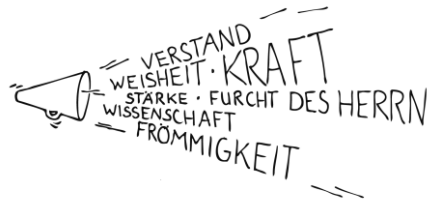 VERSTAND
WEISHEIT · KRAFT
STÄRKE · FURCHT DES HERRN
WISSENSCHAFT
FRÖMMIGKEIT